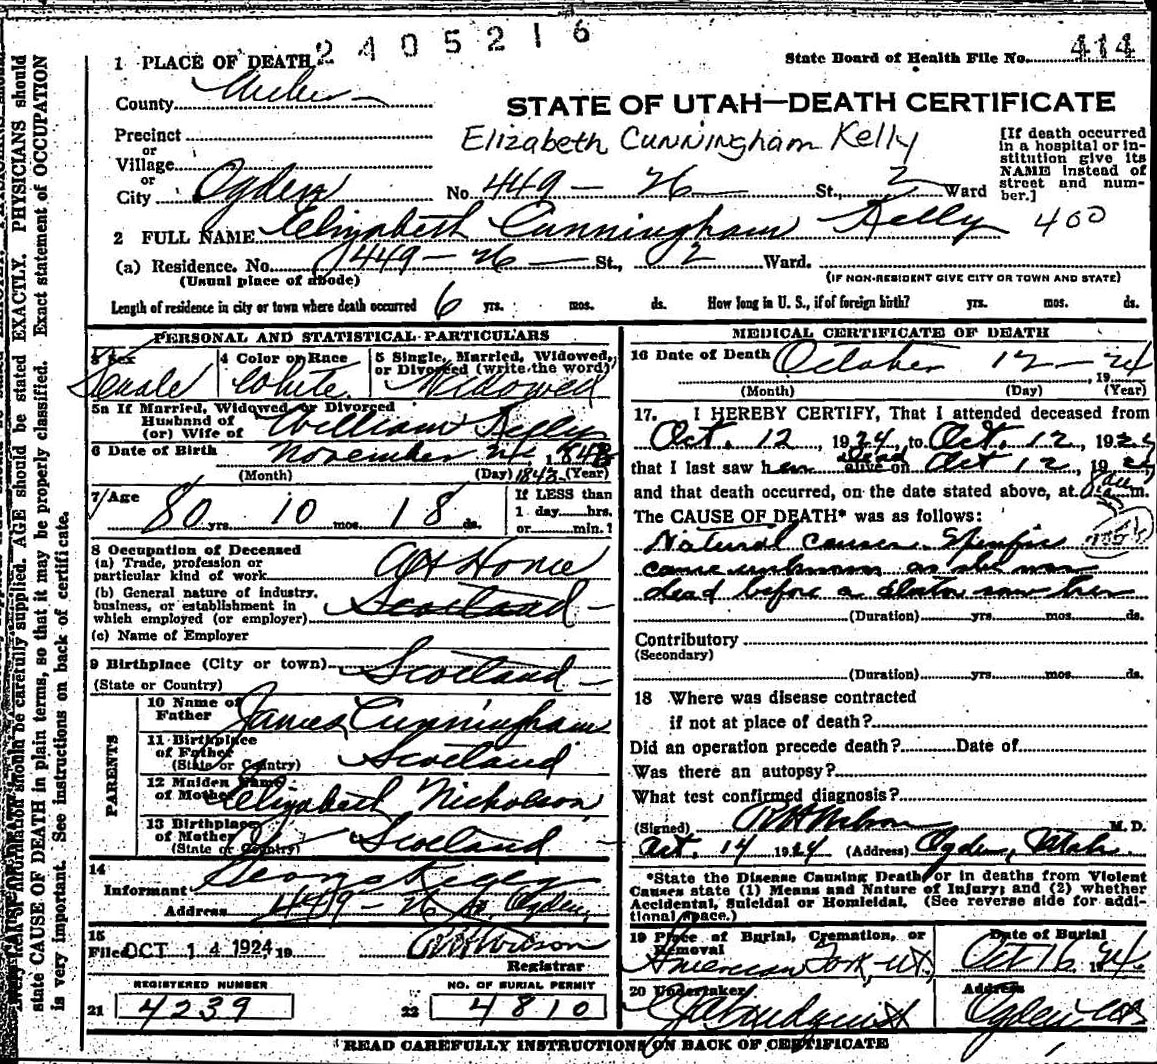 2405216
1 PLACE OF DEATH
State Board of Health File No. 414
County Weber
STATE OF UTAH—DEATH CERTIFICATE
Precinct
or
Village
or
City Ogden
Elizabeth Cunningham Kelly
[If death occurred
in a hospital or in-
stitution give its
NAME instead of
street and num-
ber.]
No. 449 - 26 St., 2 Ward
400
2 FULL NAME Elizabeth Cunningham Kelly
(a) Residence. No. 449 - 26 St., 2 Ward.
(Usual place of abode)
(IF NON-RESIDENT GIVE CITY OR TOWN AND STATE)
Length of residence in city or town where death occurred 6 yrs. mos. ds. How long in U. S., if of foreign birth? yrs. mos. ds.
PERSONAL AND STATISTICAL PARTICULARS
3 Sex
Female
4 Color or Race
White
5 Single, Married, Widowed,
or Divorced (write the word)
Widowed
5a If Married, Widowed or Divorced
Husband of
(or) Wife of William Kelly
6 Date of Birth November 24 1843
(Month) (Day) 1843 (Year)
7 Age
80 yrs. 10 mos. 18 ds.
If LESS than
1 day hrs.
or min.?
8 Occupation of Deceased
(a) Trade, profession or
particular kind of work At Home
(b) General nature of industry,
business, or establishment in
which employed (or employer) Scotland
(c) Name of Employer
9 Birthplace (City or town) Scotland
(State or Country)
PARENTS
10 Name of
Father James Cunningham
11 Birthplace
of Father Scotland
(State or Country)
12 Maiden Name
of Mother Elizabeth Nicholson
13 Birthplace
of Mother Scotland
(State or Country)
14
Informant
Address 449 - 26 St. Ogden
15
Filed OCT 14 1924, 19
Registrar
REGISTERED NUMBER
21 4239
NO. OF BURIAL PERMIT
22 4810
MEDICAL CERTIFICATE OF DEATH
16 Date of Death October 12 - 1924
(Month) (Day) (Year)
17. I HEREBY CERTIFY, That I attended deceased from
Oct. 12, 1924, to Oct. 12, 1924
that I last saw her dead alive on Oct 12, 1924
and that death occurred, on the date stated above, at 8 a.m.
The CAUSE OF DEATH* was as follows:
Natural causes. Specific
cause unknown as she was
dead before a doctor saw her
(Duration) yrs. mos. ds.
Contributory
(Secondary)
(Duration) yrs. mos. ds.
18 Where was disease contracted
if not at place of death?
Did an operation precede death? Date of
Was there an autopsy?
What test confirmed diagnosis?
(Signed) M. D.
Oct. 14 1924 (Address) Ogden, Utah.
*State the Disease Causing Death, or in deaths from Violent
Causes state (1) Means and Nature of Injury; and (2) whether
Accidental, Suicidal or Homicidal. (See reverse side for addi-
tional space.)
19 Place of Burial, Cremation, or
Removal
American Fork, Ut.
Date of Burial
Oct 16 1924.
20 Undertaker
Address
Ogden
READ CAREFULLY INSTRUCTIONS ON BACK OF CERTIFICATE
should be carefully supplied. AGE should be stated EXACTLY. PHYSICIANS should
state CAUSE OF DEATH in plain terms, so that it may be properly classified. Exact statement of OCCUPATION
is very important. See instructions on back of certificate.